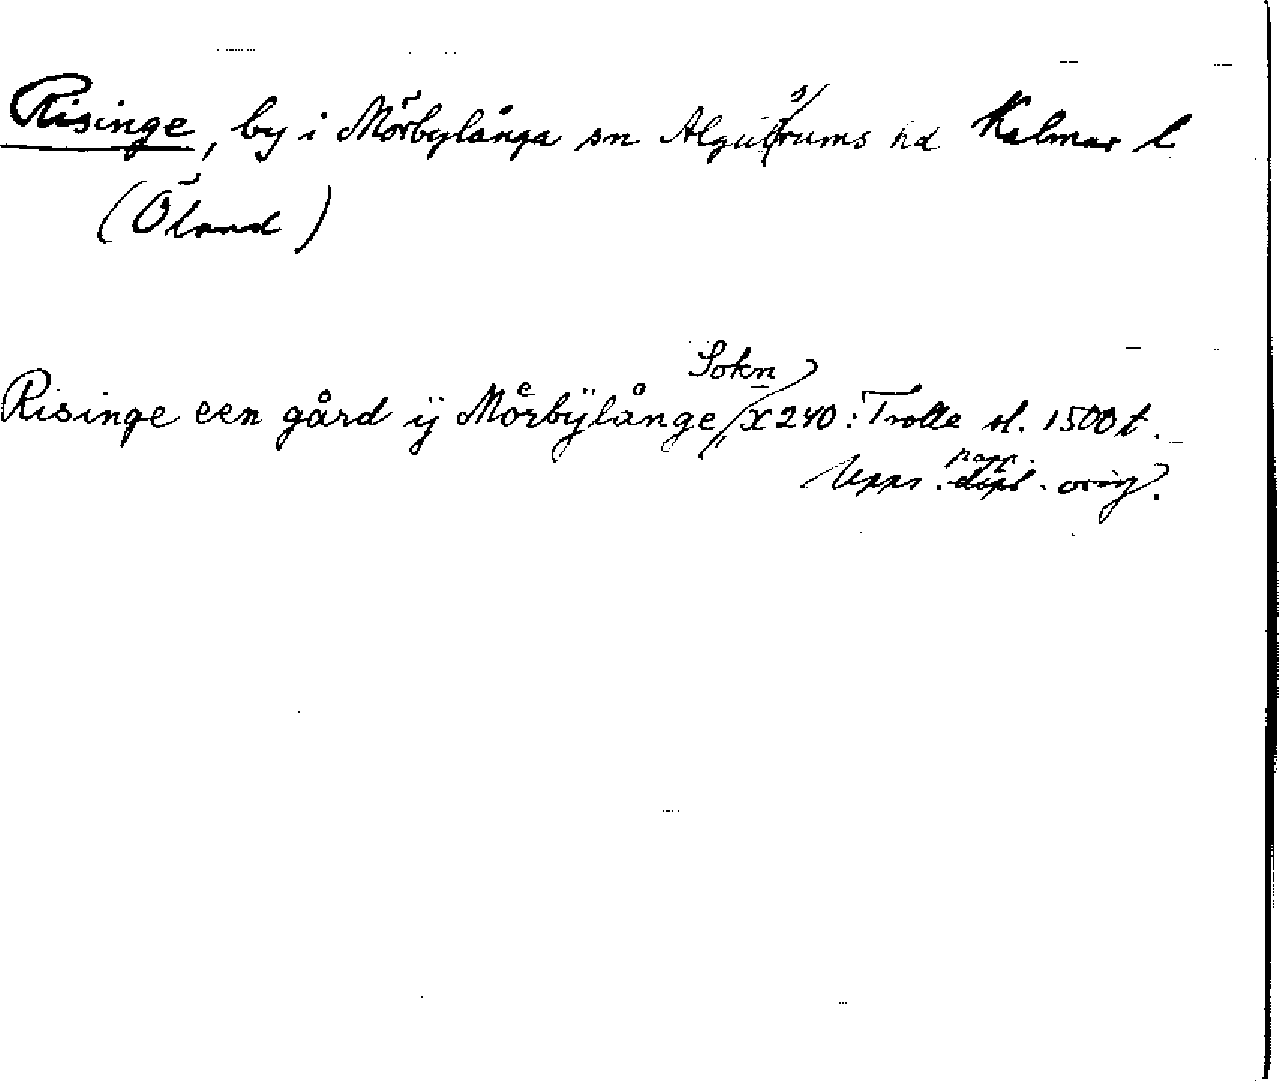 Risinge, by i Mörbylånga sn Algutsrums hd Kalmar l
(Öland)
Risinge een gård ÿ Mörbÿlånge Sokn X 240: Trolle sl. 1500 t.
Upps. papp. orig.